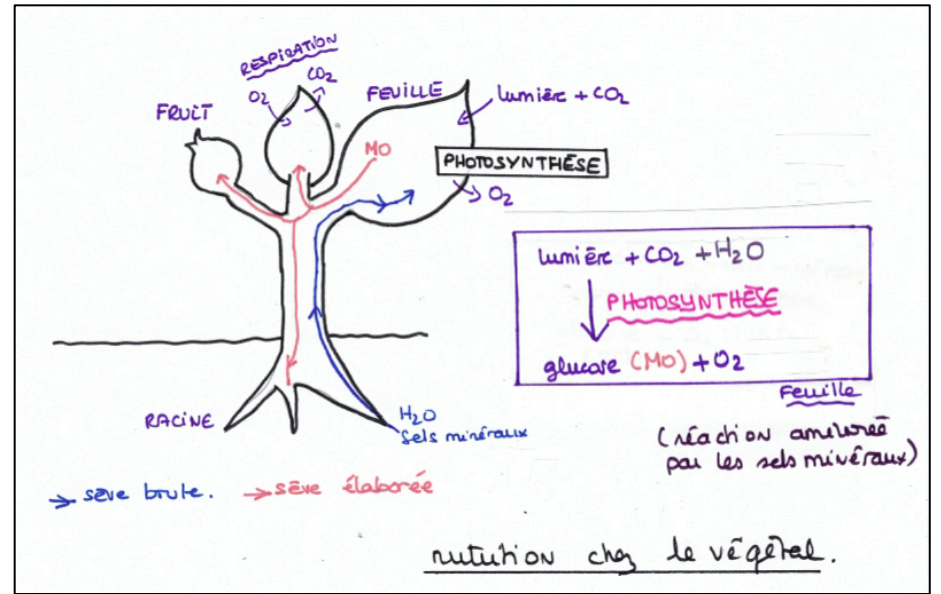 RESPIRATION
O2
CO2
FRUIT
FEUILLE
lumière + CO2
MO
PHOTOSYNTHÈSE
O2
lumière + CO2 + H2O
PHOTOSYNTHÈSE
glucose (MO) + O2
Feuille
(réaction améliorée
par les sels minéraux)
RACINE
H2O
Sels minéraux
sève brute.
sève élaborée
nutrition chez le végétal.